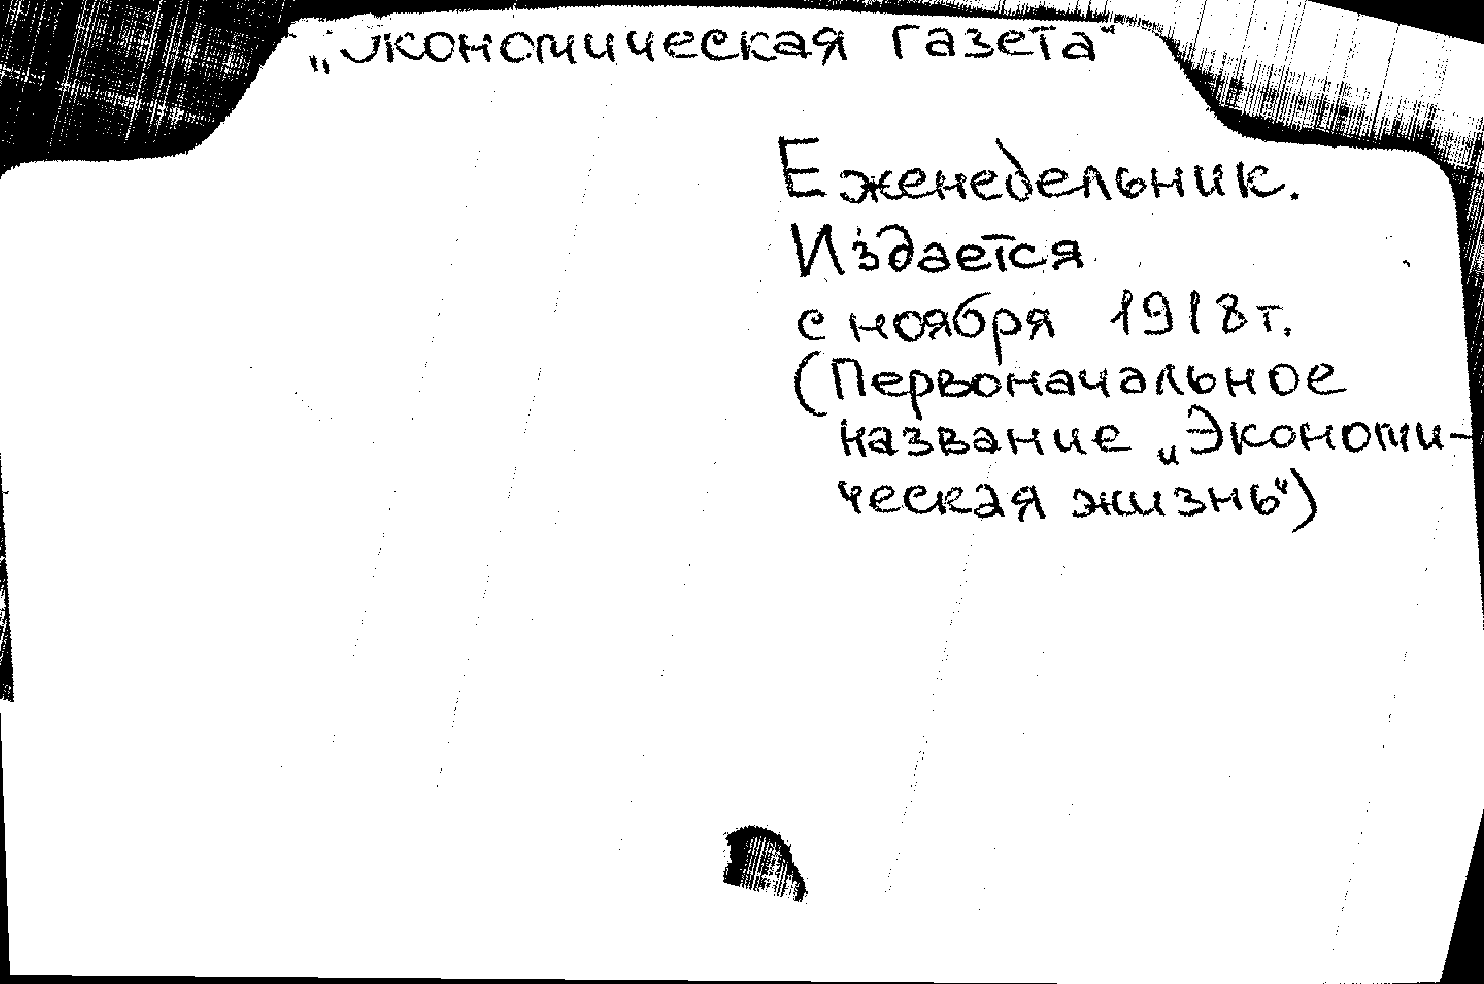 „Экономическая газета"
Еженедельник.
Издается
с ноября 1918г.
(Первоначальное
название „Экономи-
ческая жизнь")